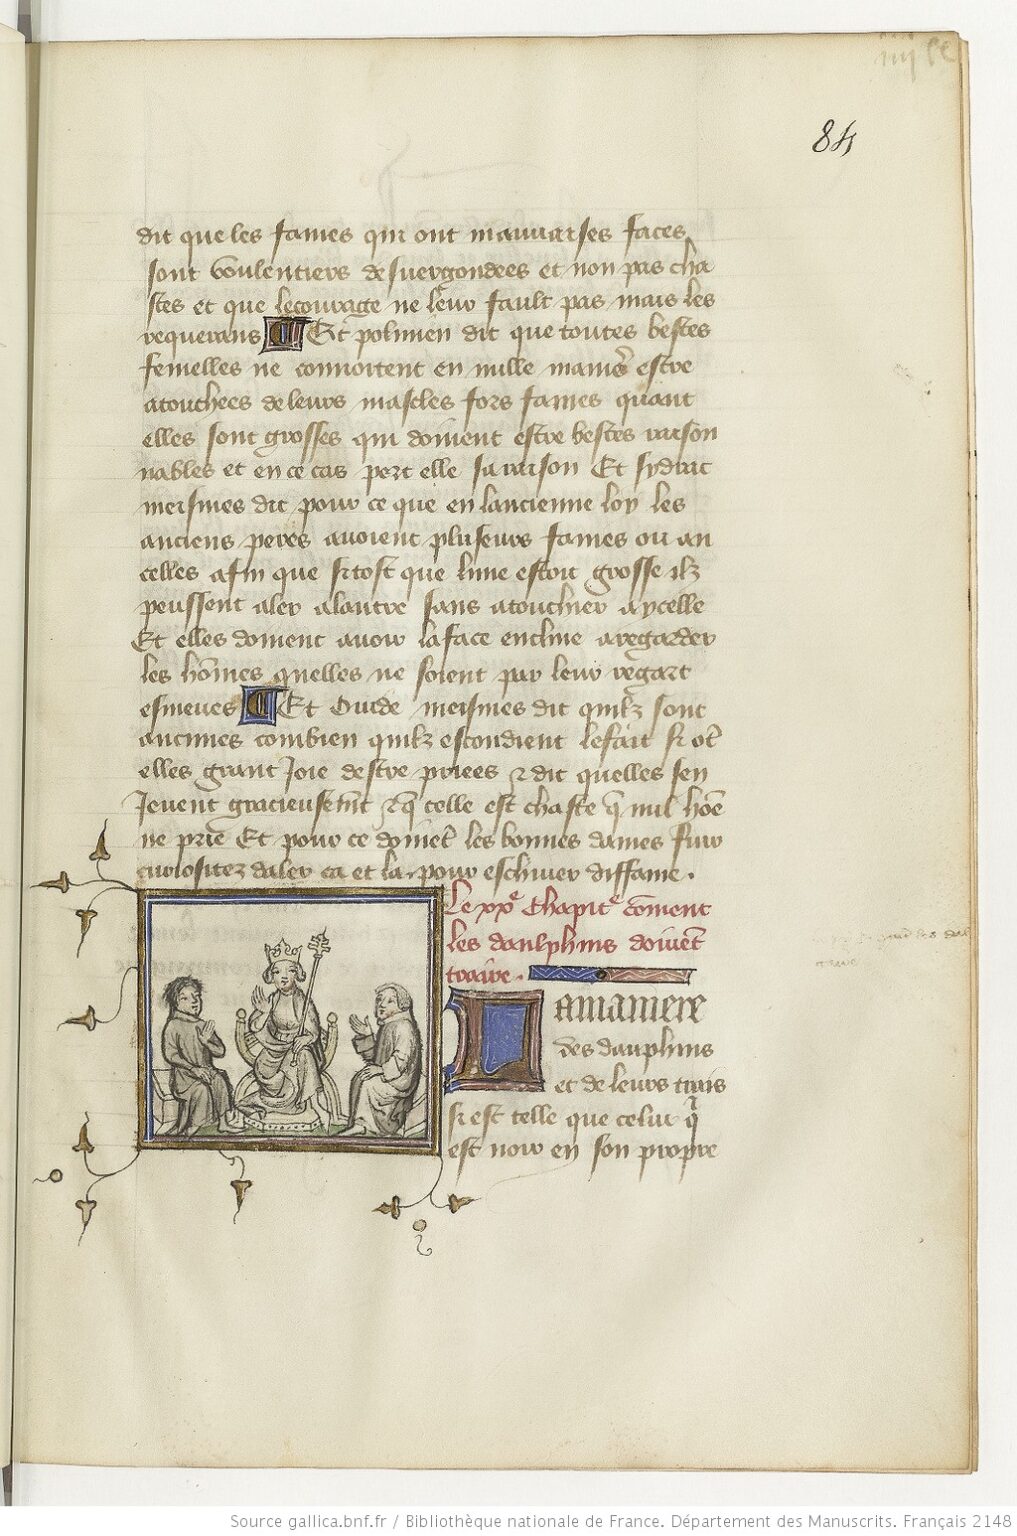 84
dit que les fames qui ont mauuaises faces
sont voulentiers desuergondees et non pas cha
stes et que lecourage ne leur fault pas mais les
requerans Et polimien dit que toutes bestes
femelles ne connoitent en nulle manie estre
atouchees de leurs mascles fors fames quant
elles sont grosses qui doiuent estre bestes raison
nables et en ce cas pert elle sa raison Et sydrac
meismes dit pour ce que en lancienne loy les
anciens peres auoient pluseurs fames ou an
celles afin que si tost que lune estoit grosse ilz
peussent aler alautre sans atouchier aycelle
Et elles doiuent auoir la face encline aregarder
les hõmes quelles ne soient par leur regart
esmeues Et Ouide meismes dit quilz sont
aucunes combien quilz escondient le fait si ot
elles grant Joie destre priees et dit quelles sen
Jeuent gracieusemt et q̃ celle est chaste q̃ nul hõe
ne prie Et pour ce doiuet les bonnes dames fuir
curiositez daler ca et la pour eschiuer diffame.
Le xxe Chapitre cõment
les daulphins doiuẽt
traire.
La maniere
des dauphins
et de leurs trais
si est telle que celui q̃
est noir en son propre
Source gallica.bnf.fr / Bibliothèque nationale de France. Département des Manuscrits. Français 2148